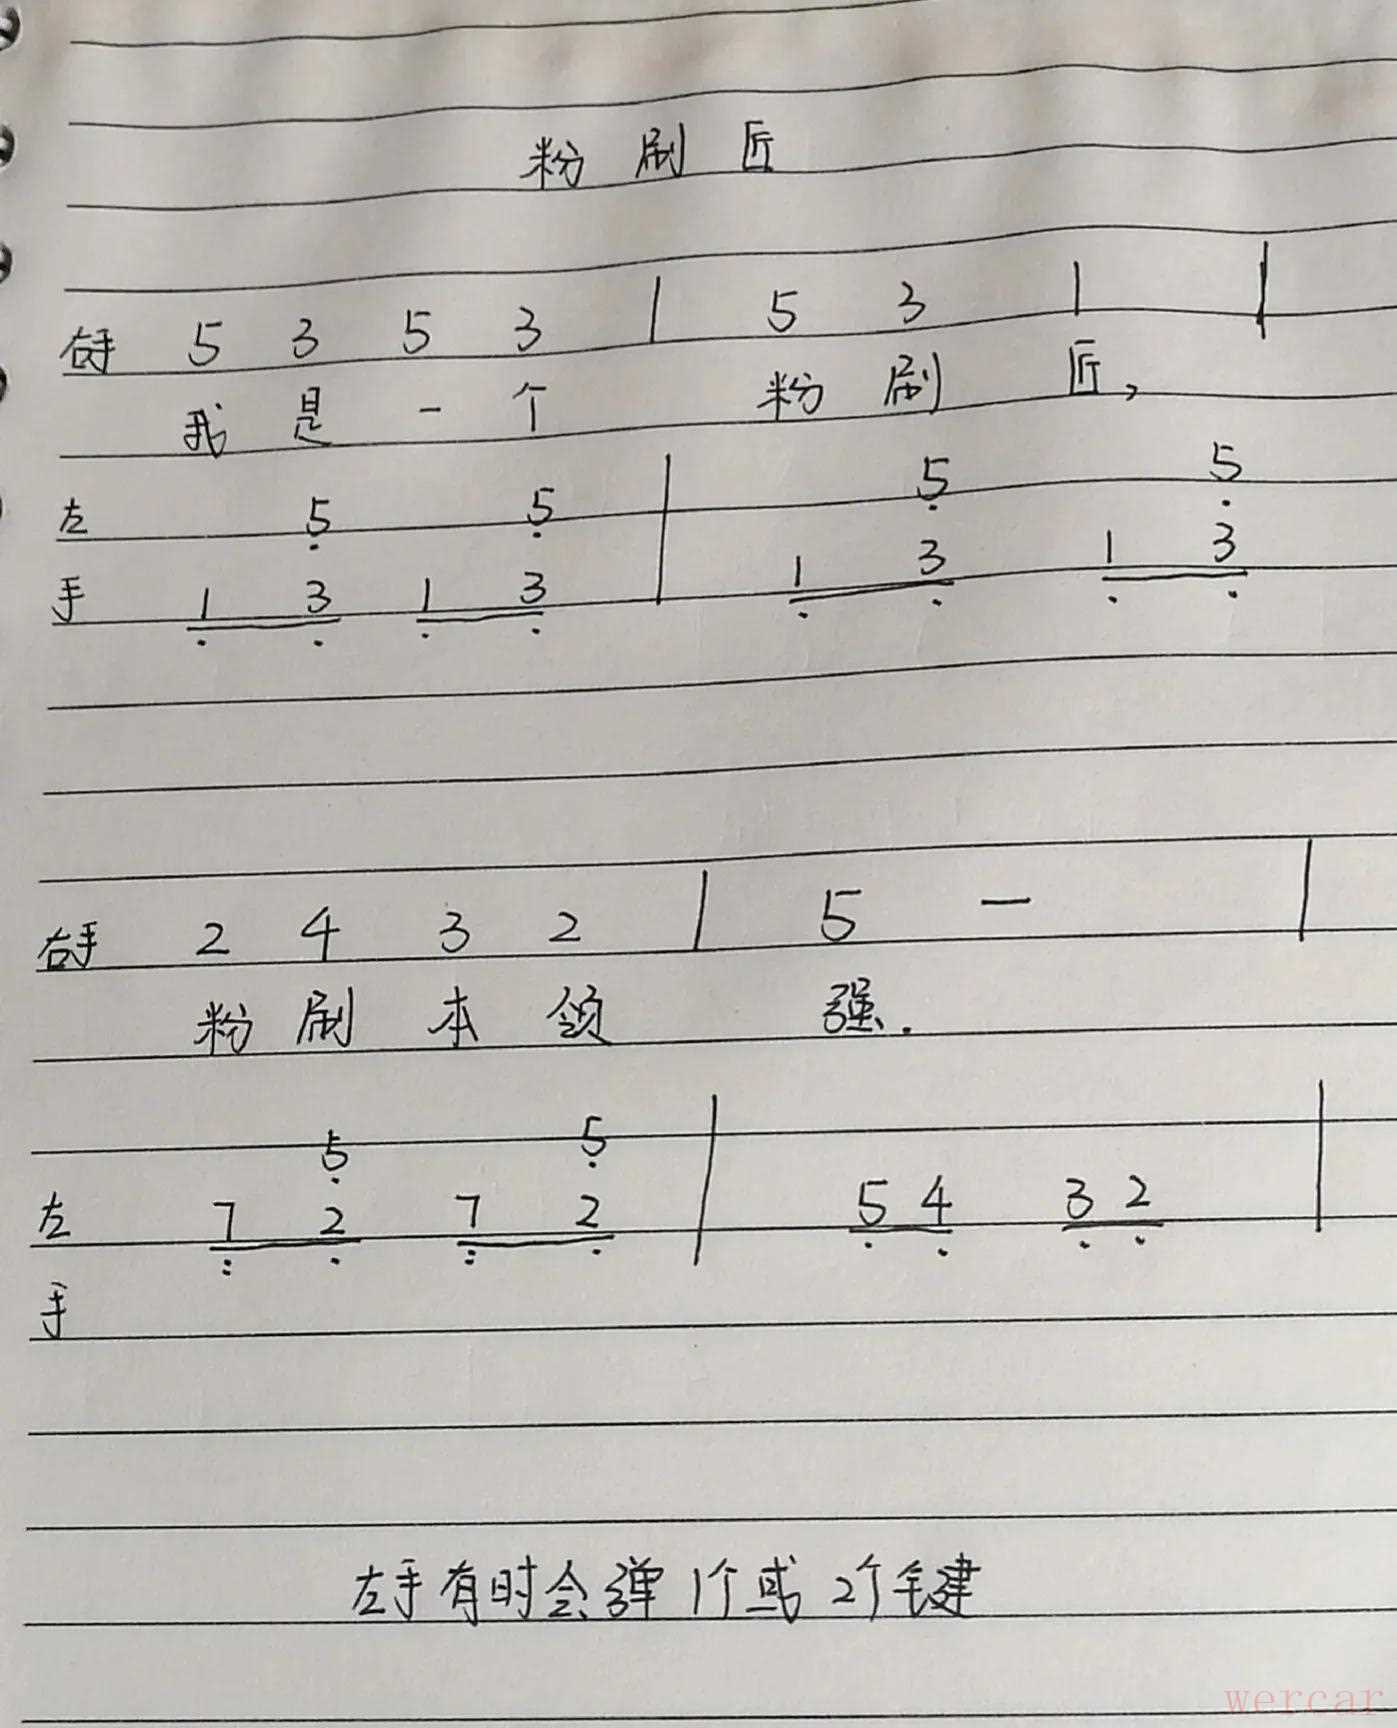 粉刷匠
右手 5 3 5 3 | 5 3 1 |
我是一个 粉刷匠,
左 5 5 | 5 5
手 1 3 1 3 | 1 3 1 3
右手 2 4 3 2 | 5 一 |
粉刷本领 强.
5 5 |
左 7 2 7 2 | 5 4 3 2 |
手
左手有时会弹1个或2个键
wercar